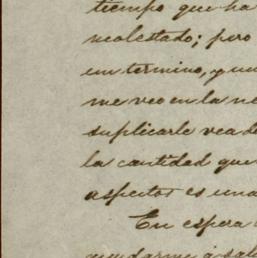 tiempo que ha
molestado; pero
un termino, y un
me veo en la ne
suplicarle vea de
la cantidad que
aspectos es una
En espera